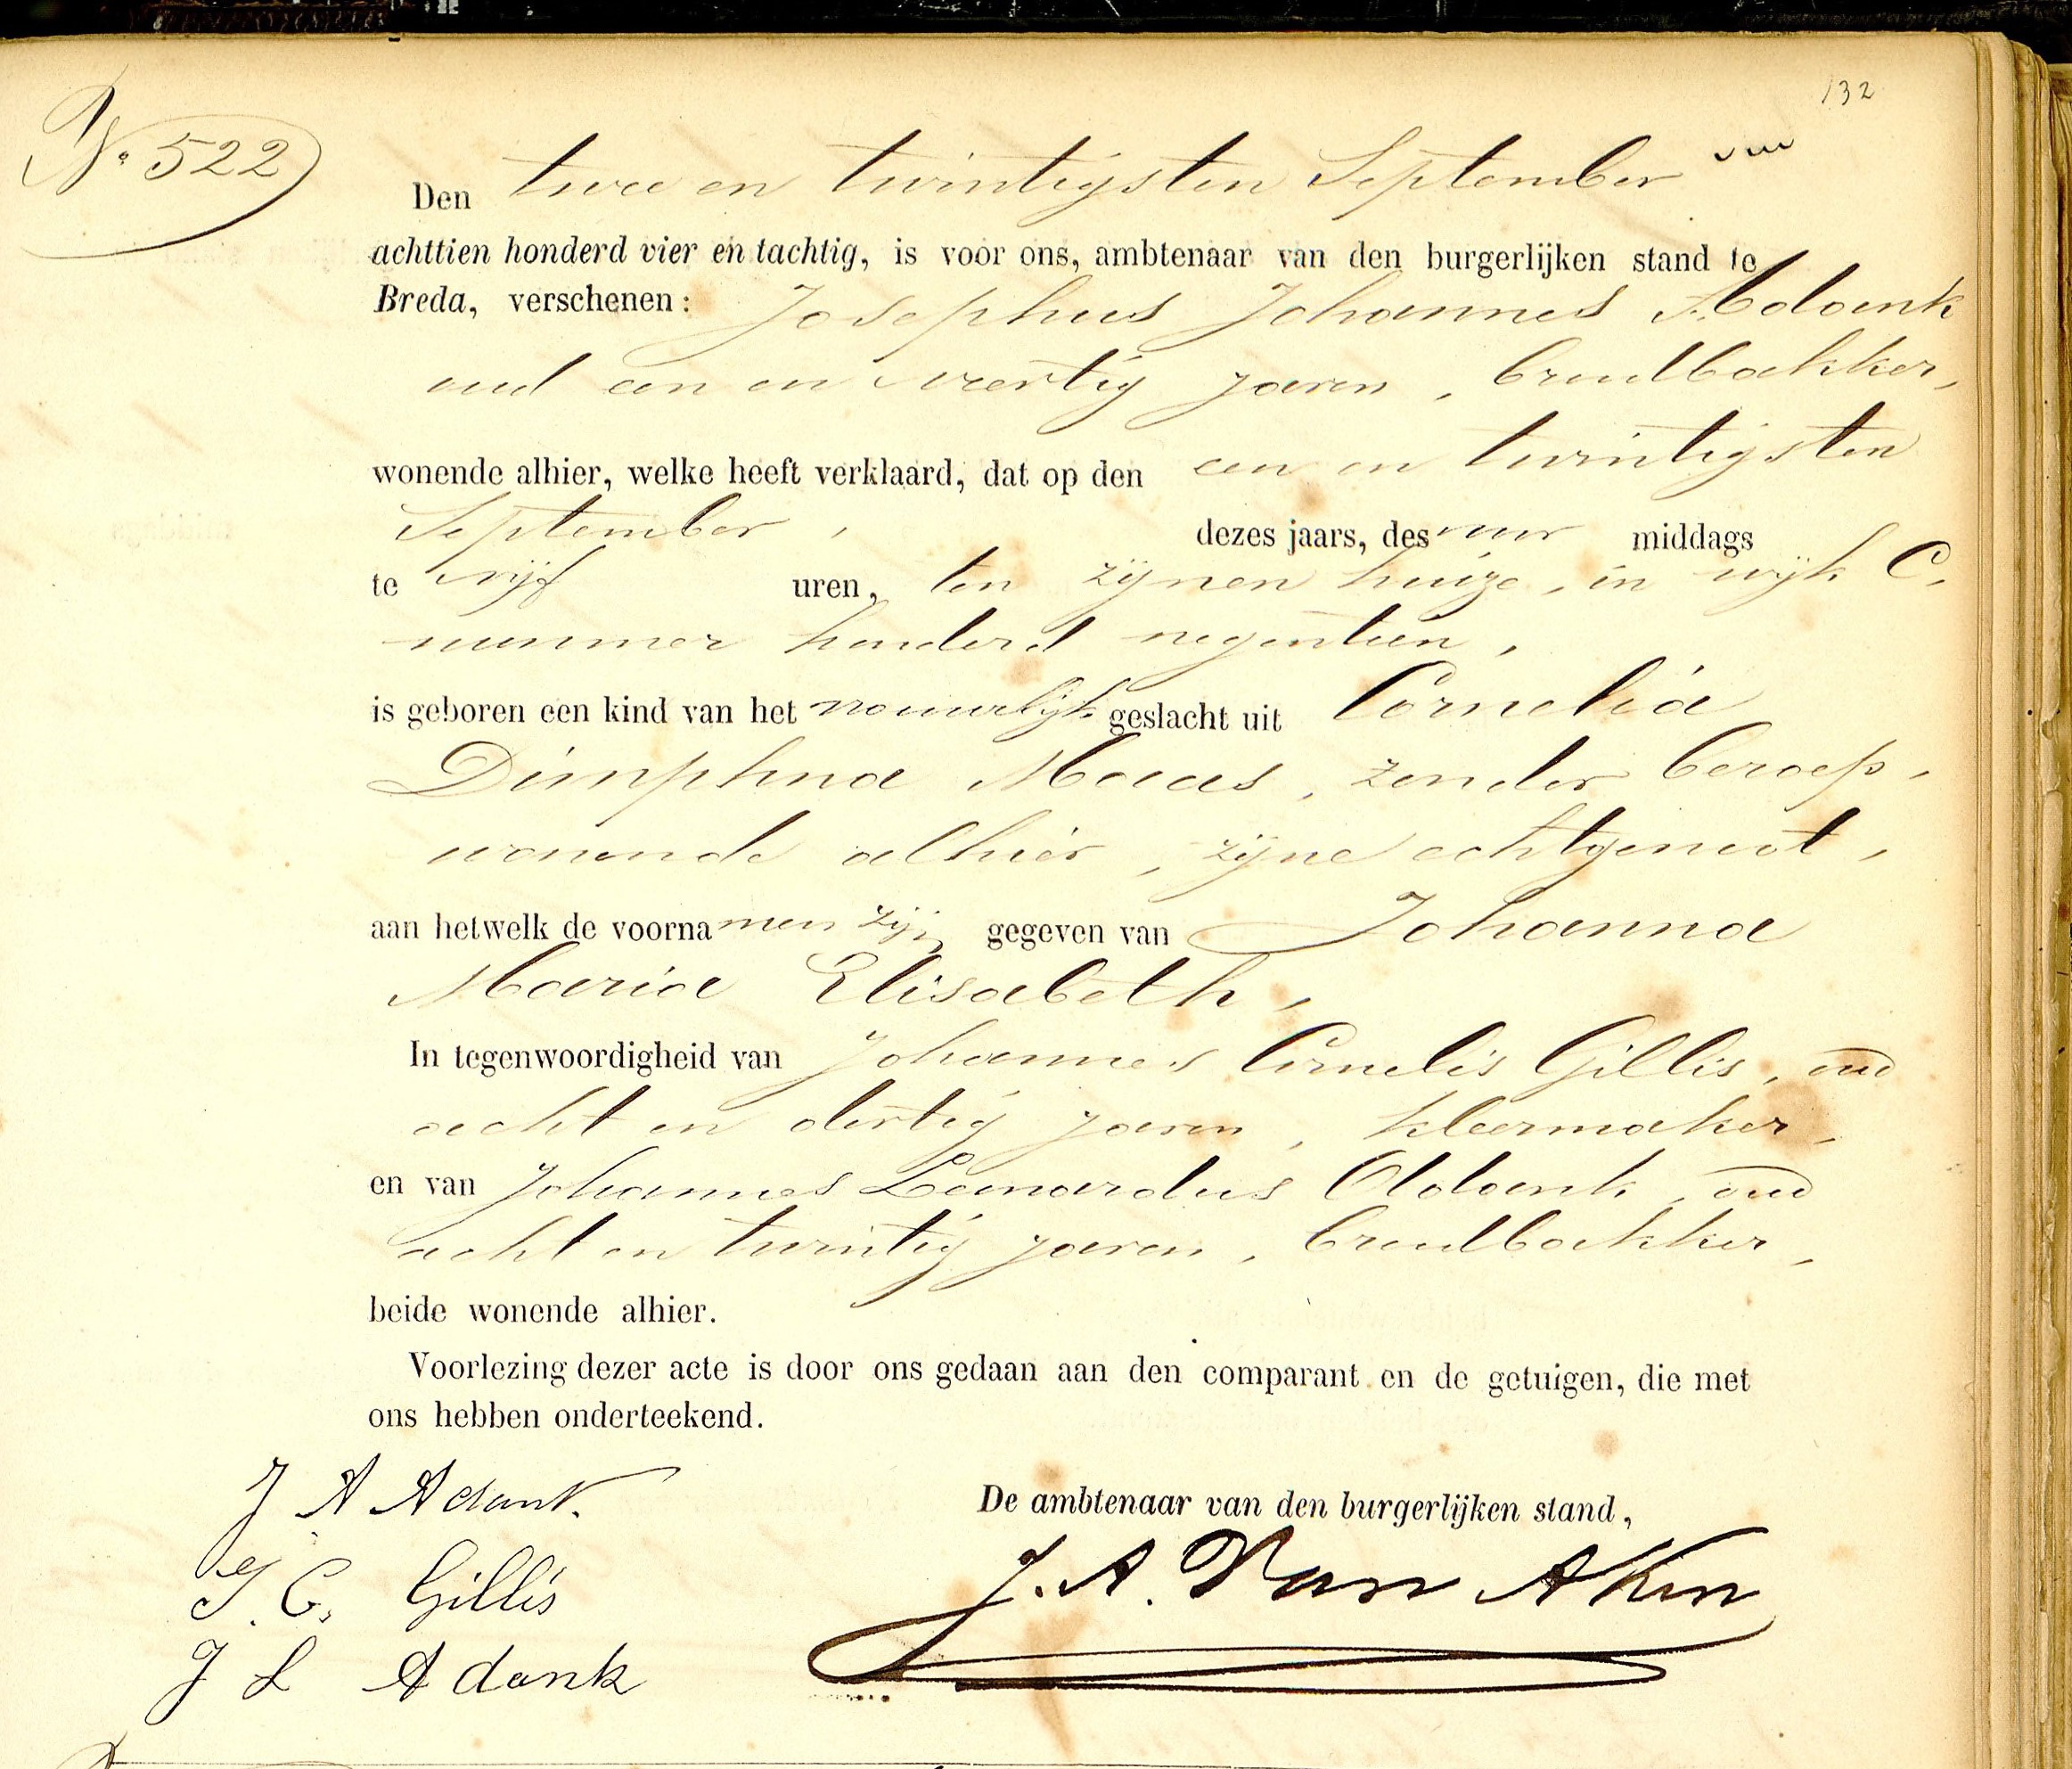 132
No. 522
Den twee en twintigsten September van
achttien honderd vier en tachtig, is voor ons, ambtenaar van den burgerlijken stand te
Breda, verschenen: Josephus Johannes Adank
oud een en veertig jaren, broodbakker,
wonende alhier, welke heeft verklaard, dat op den een en twintigsten
September, dezes jaars, des voor middags
te vijf uren, ten zijnen huize, in wijk C,
nummer honderd negentien,
is geboren een kind van het vrouwelijk geslacht uit Cornelia
Dimphna Maas, zonder beroep,
wonende alhier, zijne echtgenoot,
aan hetwelk de voornamen zijn gegeven van Johanna
Maria Elisabeth,
In tegenwoordigheid van Johannes Cornelis Gillis, oud
acht en dertig jaren, kleermaker,
en van Johannes Leonardus Adank, oud
acht en twintig jaren, broodbakker,
beide wonende alhier.
Voorlezing dezer acte is door ons gedaan aan den comparant en de getuigen, die met
ons hebben onderteekend.
J A Adank.
De ambtenaar van den burgerlijken stand,
J. C. Gillis
J. A. Van Aken
J L Adank